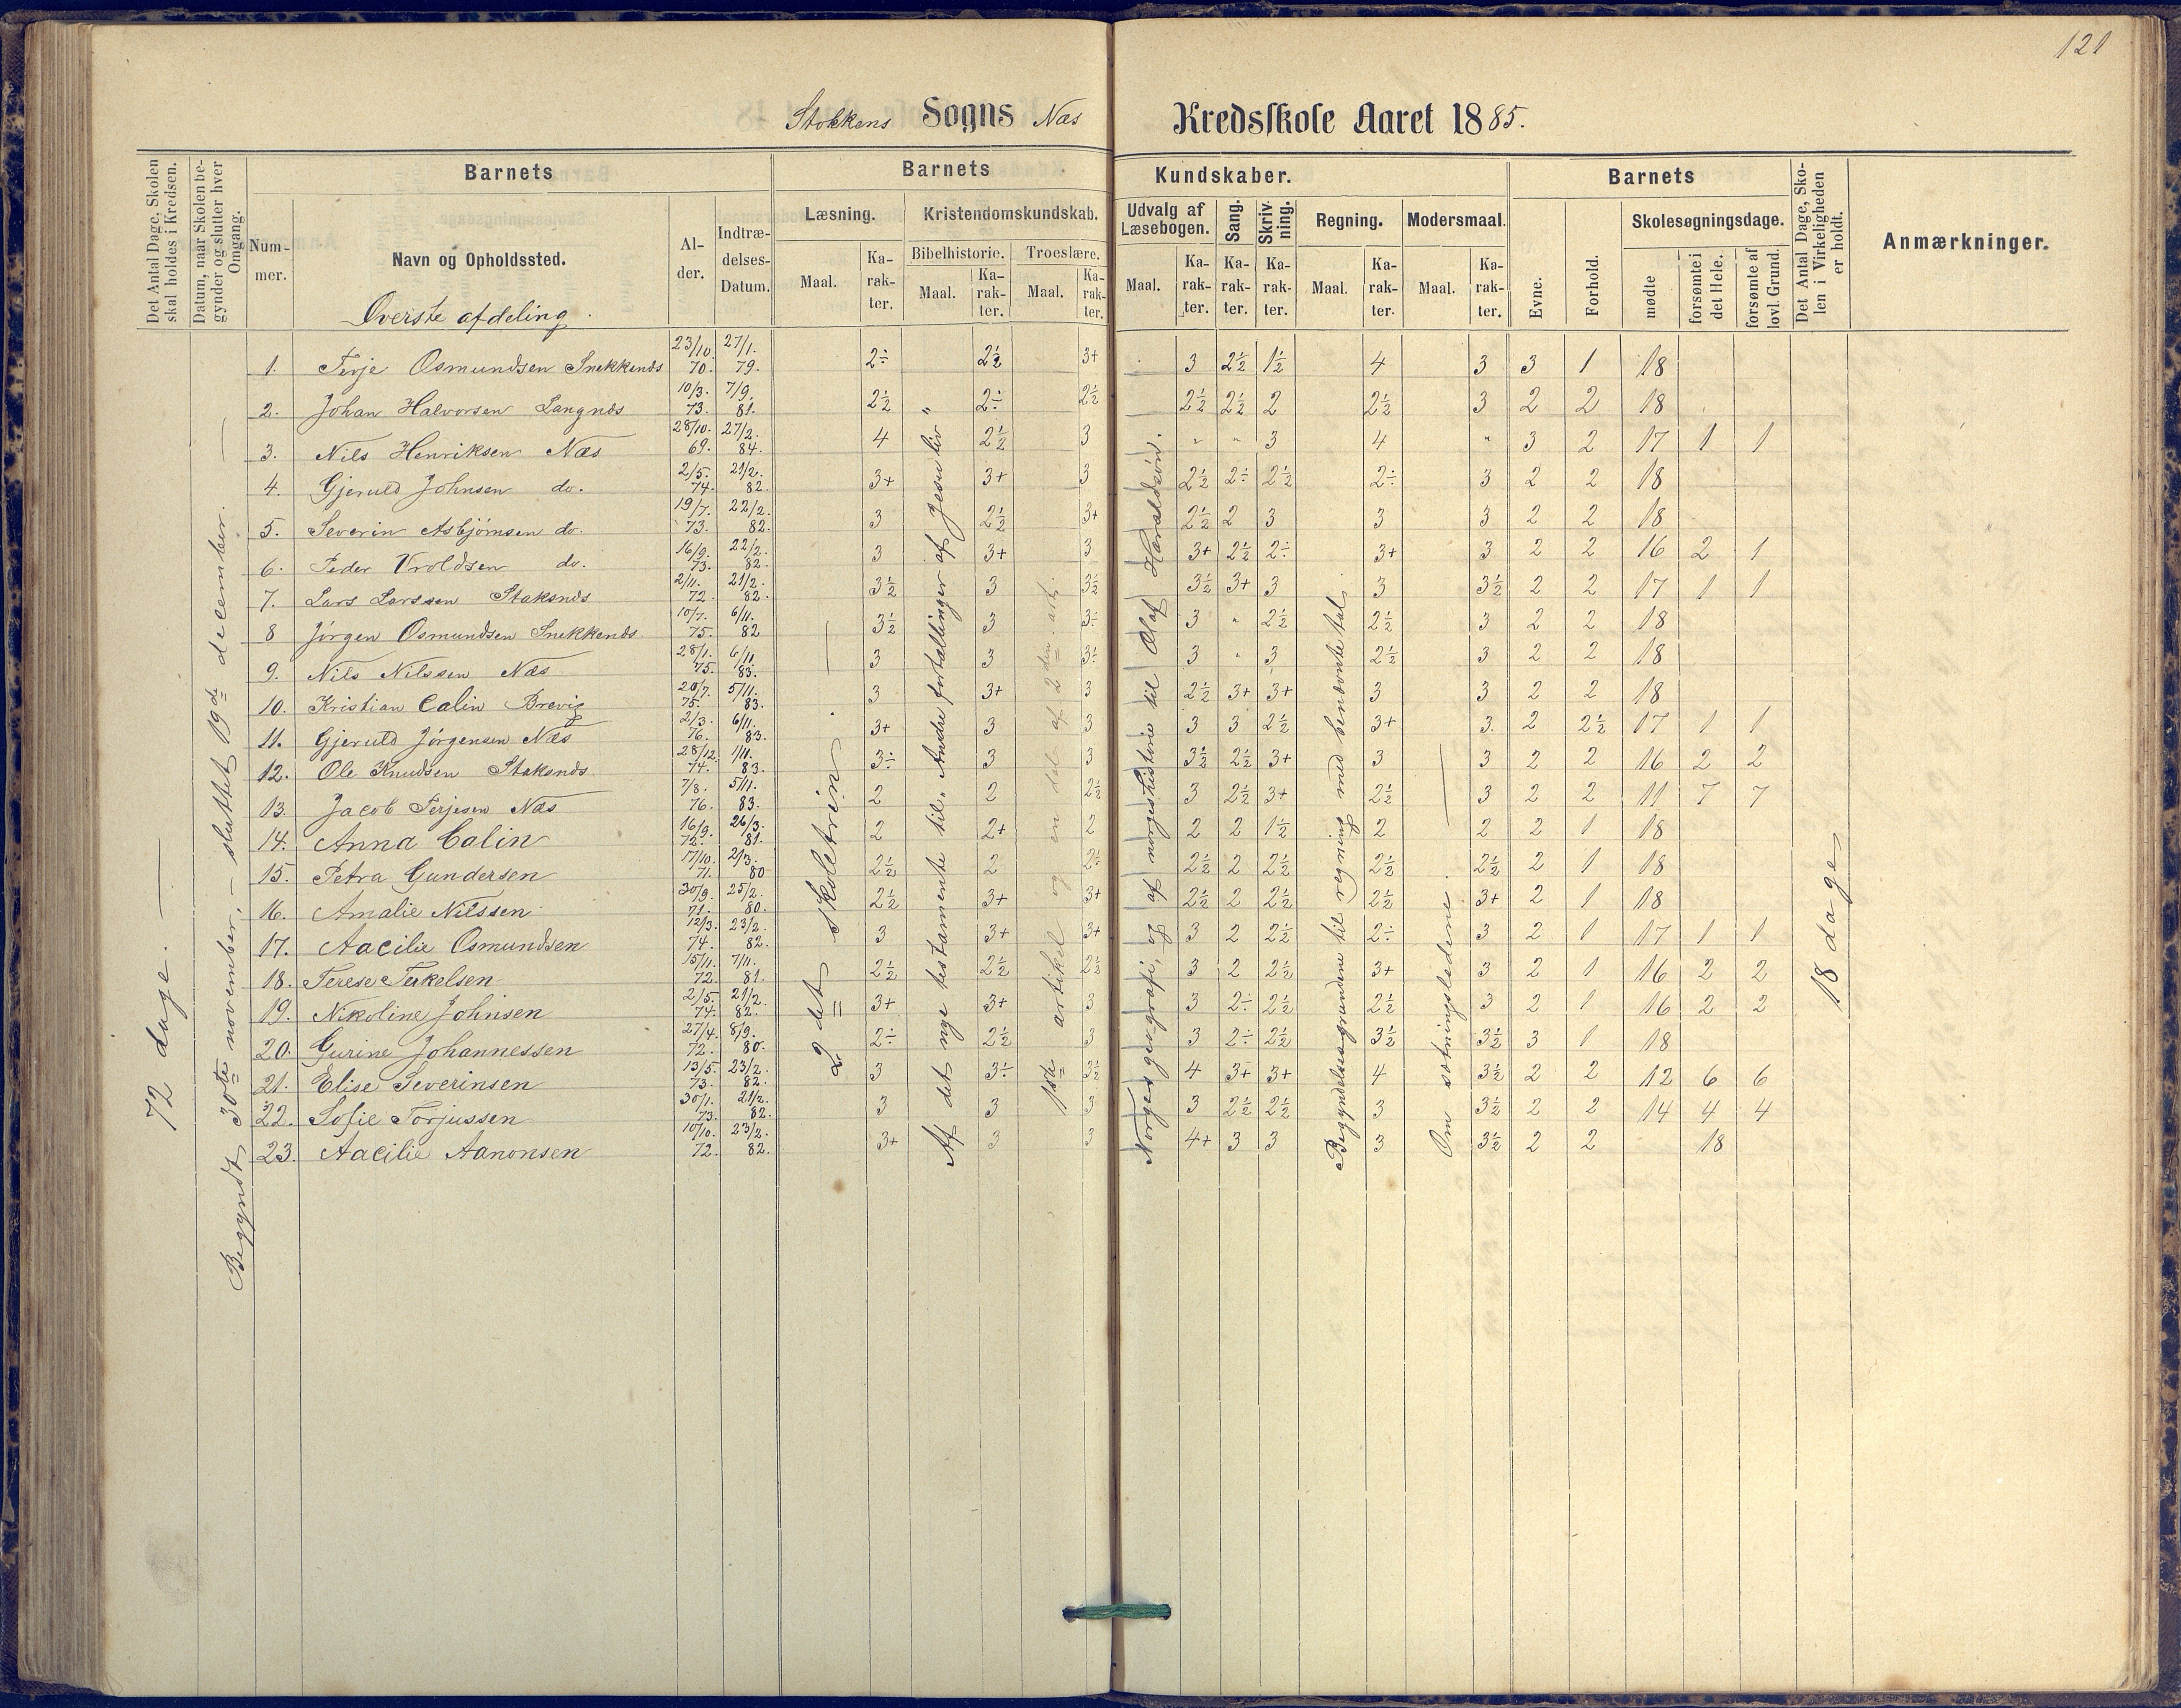 121
Stokkens Sogns Næs Kredsskole Aaret 1885.
Det Antal Dage, Skolen skal holdes i Kredsen.
Datum, naar Skolen begynder og slutter hver Omgang.
Barnets
Nummer.
Navn og Opholdssted.
Alder.
Indtrædelses-Datum.
Barnets Kundskaber.
Læsning.
Maal. Karakter.
Kristendomskundskab.
Bibelhistorie.
Maal. Karakter.
Troeslære.
Maal. Karakter.
Udvalg af Læsebogen.
Maal. Karakter.
Sang. Karakter.
Skrivning. Karakter.
Regning.
Maal. Karakter.
Modersmaal.
Maal. Karakter.
Barnets
Evne.
Forhold.
Skolesøgningsdage.
mødte
forsømte i det Hele.
forsømte af lovl. Grund.
Det Antal Dage, Skolen i Virkeligheden er holdt.
Anmærkninger.
Øverste afdeling.
72 dage.
Begyndt 30te november, – sluttet 19de december.
2det skoletrin.
Af det nye testamente til „Andre fortællinger af Jesu liv“
1ste artikel og en del af 2den art.
Norges geografi, og af norgeshistorie til Olaf Haraldsøn.
Begyndelsesgrundene til regning med benævnte tal.
Om sætningsledene.
18 dage
1. Terje Osmundsen Snekkenæs 23/10. 70. 27/1. 79. 2÷ 2½ 3+ 3 2½ 1½ 4 3 3 1 18
2. Johan Halvorsen Langnæs 10/3. 73. 7/9. 81. 2½ 2÷ 2½ 2½ 2½ 2 2½ 3 2 2 18
3. Nils Henriksen Næs 28/10. 69. 27/2. 84. 4 2½ 3 " " 3 4 " 3 2 17 1 1
4. Gjeruld Johnsen do. 2/5. 74. 21/2. 82. 3+ 3+ 3 2½ 2÷ 2½ 2÷ 3 2 2 18
5. Severin Asbjørnsen do. 19/7. 73. 22/2. 82. 3 2½ 3+ 2½ 2 3 3 3 2 2 18
6. Peder Vroldsen do. 16/9. 73. 22/2. 82. 3 3+ 3 3+ 2½ 2÷ 3+ 3 2 2 16 2 1
7. Lars Larssen Staksnæs 2/11. 72. 21/2. 82. 3½ 3 3½ 3½ 3+ 3 3 3½ 2 2 17 1 1
8 Jørgen Osmundsen Snekkenæs 10/7. 75. 6/11. 82 3½ 3 3÷ 3 " 2½ 2½ 3 2 2 18
9. Nils Nilssen Næs 28/1. 75. 6/11 83. 3 3 3÷ 3 " 3 2½ 3 2 2 18
10. Kristian Calin Brevig 20/7. 75. 5/11. 83. 3 3+ 3 2½ 3+ 3+ 3 3 2 2 18
11. Gjeruld Jørgensen Næs 2/3. 76. 6/11. 83. 3+ 3 3 3 3 2½ 3+ 3. 2 2½ 17 1 1
12. Ole Knudsen Staksnæs 28/12. 74. 1/11. 83. 3÷ 3 3 3½ 2½ 3+ 3 3 2 2 16 2 2
13. Jacob Terjesen Næs 7/8. 76. 5/11. 83. 2 2 2½ 3 2½ 3+ 2½ 3 2 2 11 7 7
14. Anna Calin 16/9. 72. 26/3. 81. 2 2+ 2 2 2 1½ 2 2 2 1 18
15. Petra Gundersen 17/10. 71. 2/3. 80 2½ 2 2÷ 2½ 2 2½ 2½ 2½ 2 1 18
16. Amalie Nilssen 30/9. 71. 25/2. 80. 2½ 3+ 3+ 2½ 2 2½ 2½ 3+ 2 1 18
17. Aacilie Osmundsen 12/3. 74. 23/2. 82. 3 3+ 3+ 3 2 2½ 2÷ 3 2 1 17 1 1
18. Terese Terkelsen 15/11. 72. 7/11. 81. 2½ 2½ 2½ 3 2 2½ 3+ 3 2 1 16 2 2
19. Nikoline Johnsen 2/5. 74. 21/2. 82. 3+ 3+ 3 3 2÷ 2½ 2½ 3 2 1 16 2 2
20. Gurine Johannessen 27/4. 72. 8/9. 80. 2÷ 2½ 3 3 2÷ 2½ 3½ 3½ 3 1 18
21. Elise Severinsen 13/5. 73. 23/2. 82. 3 3÷ 3½ 4 3+ 3+ 4 3½ 2 2 12 6 6
22. Sofie Torjussen 30/1. 73. 21/2. 82. 3 3 3 3 2½ 2½ 3 3½ 2 2 14 4 4
23. Aacilie Aanonsen 10/10. 72. 23/2. 82. 3+ 3 3 4+ 3 3 3 3½ 2 2 18